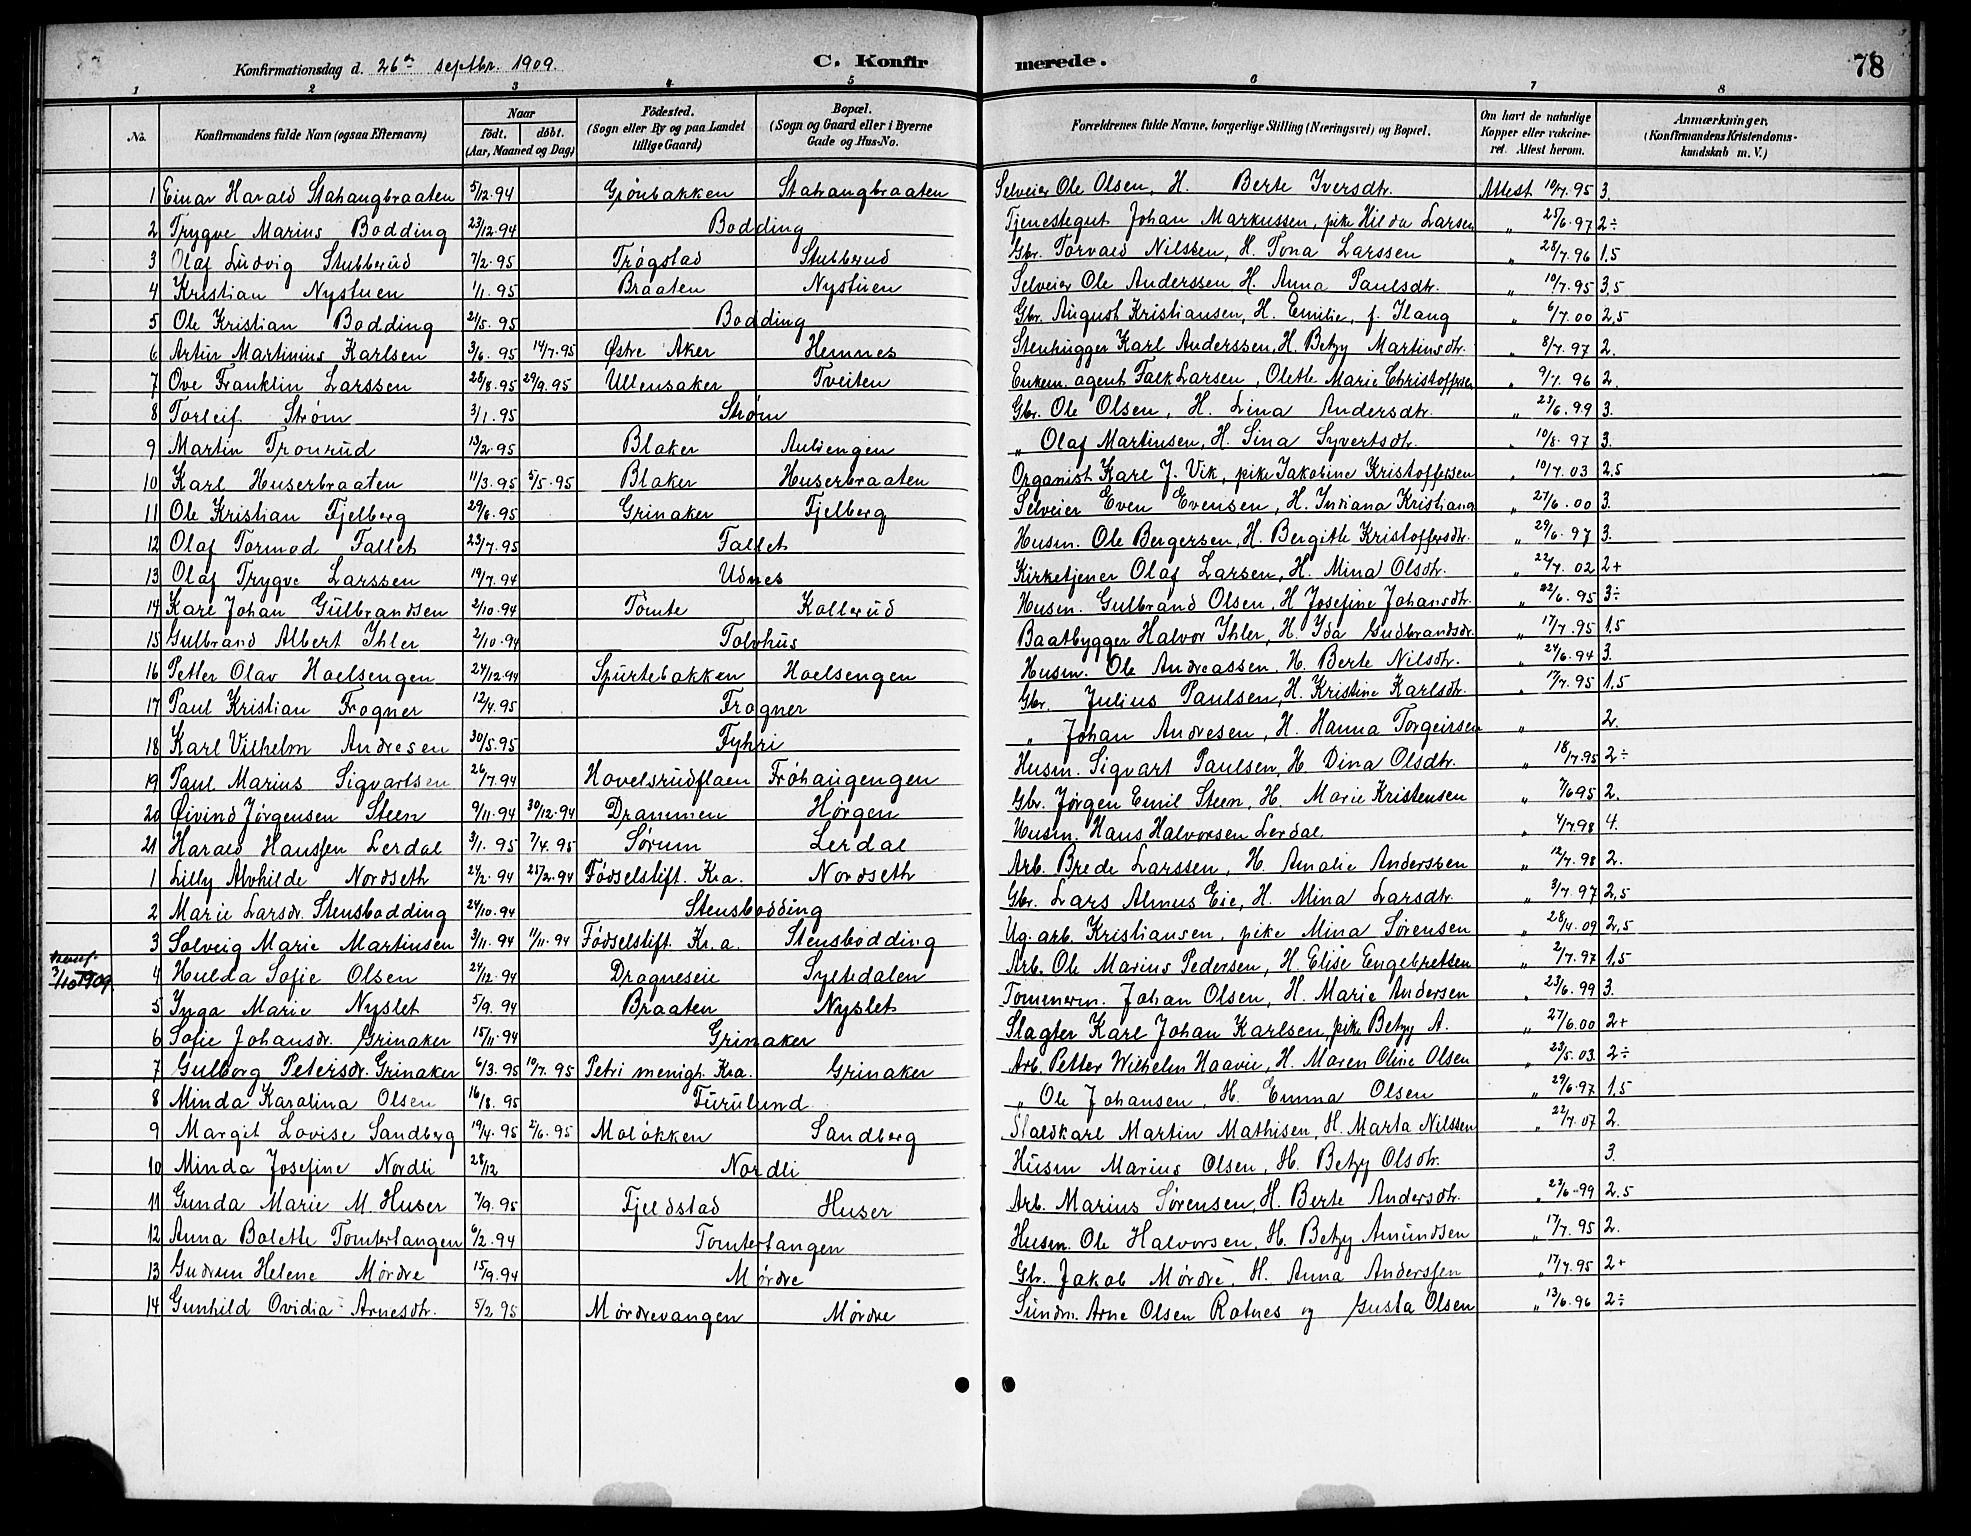 Konfirmationsdag d. 26de septbr. 1909. C. Konfirmerede. 78
1 2 3 4 5 6 7 8
No. Konfirmandens fulde Navn (ogsaa Efternavn) Naar født. døbt. (Aar, Maaned og Dag) Fødested. (Sogn eller By og paa Landet tillige Gaard) Bopæl. (Sogn og Gaard eller i Byerne Gade og Hus-No. Forældrenes fulde Navne, borgerlige Stilling (Næringsvei) og Bopæl. Om havt de naturlige Kopper eller vakcineret. Attest herom. Anmærkninger. (Konfirmandens Kristendomskundskab m. V.)
1 Einar Harald Stahaugbraaten 5/12.94 Grønbakken Stahaugbraaten Selveier Ole Olsen, H. Berte Iversdtr. Attest 10/7.95 3.
2 Trygve Marius Bodding 23/12.94 Bodding Tjenestegut Johan Markussen, pike Hilda Larsen " 25/6.97 2÷
3 Olaf Ludvig Stubberud 7/2.95 Trøgstad Stubberud Gbr. Torvald Nilssen, H. Tona Larssen " 28/7.96 1,5
4 Kristian Nystuen 1/1.95 Braaten Nystuen Selveier Ole Anderssen H. Anna Paulsdtr. " 10/7.95 3,5
5 Ole Kristian Bodding 21/5.95 Bodding Gbr. August Kristiansen, H. Emilie, f. Ilang " 6/7.00 2,5
6 Artur Martinius Karlsen 3/6.95 14/7.95 Østre Aker Hemnes Stenhugger Karl Anderssen, H. Betzy Martinsdtr. " 8/7.97 2.
7 Ove Franklin Larssen 28/8.95 29/9.95 Ullensaker Tveiten agent Falk Larsen, Olette Marie Christoffersen " 9/7.96 2.
8 Torleif Strøm 3/1.95 Strøm Gbr. Ole Olsen, H. Lina Andersdtr. " 23/6.99 3.
9 Martin Tronrud 13/2.95 Blaker Auliengen " Olaf Martinsen, H. Sina Syvertsdtr. " 10/8.97 3.
10 Karl Huserbraaten 11/3.95 5/5.95 Blaker Huserbraaten Organist Karl J. Vik, pike Jakobine Kristoffersen " 10/7.03 2,5
11 Ole Kristian Fjelberg 29/6.95 Grinaker Fjelberg Selveier Even Evensen, H. Indiana Kristians " 27/6.00 3.
12 Olaf Tormod Fallet 23/7.95 Fallet Husm. Ole Bergersen, H. Bergitte Kristoffersdtr. " 29/6.97 3.
13 Olaf Trygve Larssen 19/7.94 Udnes Kirketjener Olaf Larsen, H. Mina Olsdtr. " 22/7.02 2+
14 Karl Johan Gulbrandsen 2/10.94 Tomte Kollerud Husm. Gulbrand Olsen, H Josefine Johansdtr. " 22/6.95 3÷
15 Gulbrand Albert Ihler 2/10.94 Tolvhus Baatbygger Halvor Ihler, H. Ida Gudbrandsdr. " 17/7.95 1,5
16 Petter Olav Hoelsengen 24/12.94 Spurtebakken Hoelsengen Husm. Ole Andreassen, H. Berte Nilsdtr. " 24/6.94 3.
17 Paul Kristian Frogner 12/4.95 Frogner Gbr. Julius Paulsen, H. Kristine Karlsdtr. " 17/7.95 1,5
18 Karl Vilhelm Andresen 30/5.95 Fyhri " Johan Andresen, H. Hanna Torgeirsen " 2.
19 Paul Marius Sigvartsen 26/7.94 Hovelsrudflaen Frøhaugengen Husm. Sigvart Paulsen, H. Dina Olsdtr. " 18/7.95 2÷
20 Øivind Jørgensen Steen 9/11.94 30/12.94 Drammen Hørgen Gbr. Jørgen Emil Steen, H. Marie Kristensen " 7/6 95 2.
21 Harald Hanssen Lerdal 3/1.95 7/4.95 Sørum Lerdal Husm. Hans Halvorsen Lerdal. " 4/7.98 4.
1 Lilly Alvhilde Nordseth 24/2.94 25/2.94 Fødselstift. Kra. Nordseth Arb. Brede Larssen, H. Amalie Anderssen " 12/7.98 2.
2 Marie Larsdr. Stensbodding 24/10.94 Stensbodding Gbr. Lars Almus Eie, H. Mina Larsdtr. " 3/7.97 2,5
3 Solveig Marie Martinsen 3/11.94 11/11.94 Fødselstift. Kr.a. Stensbodding Ug. arb. Kristiansen, pike Mina Sørensen " 28/4.09 2,5
konf. 3/10 1909. 4 Hulda Sofie Olsen 24/12.94 Dragneseie Syltedalen Arb. Ole Marius Pedersen, H. Elise Engebretsen " 2/7.97 1,5
5 Inga Marie Nyslet 5/9.94 Braaten Nyslet Tømmerm. Johan Olsen, H. Marie Andersen " 23/6.99 3.
6 Sofie Johansdr. Grinaker 15/11.94 Grinaker Slagter Karl Johan Karlsen, pike Betzy A. " 27/6.00 2+
7 Gulborg Petersdr. Grinaker 6/3.95 10/7.95 Petri menigh. Kra. Grinaker Arb. Petter Wilhelm Haavie, H. Maren Oline Olsen " 23/5.03. 2÷
8 Minda Karolina Olsen 16/8.95 Furulund " Ole Johansen, H. Emma Olsen " 29/6.97 1,5
9 Margit Lovise Sandberg 19/4.95 2/6.95 Moløkken Sandberg Staldkarl Martin Mathisen, H. Marta Nilssen " 22/7.07 2.
10 Minda Josefine Nordli 28/12 Nordli Husm Marius Olsen, H. Betzy Olsdtr. 3.
11 Gunda Marie M. Huser 7/9.95 Fjeldstad Huser Arb. Marius Sørensen, H. Berte Andersdtr. " 23/6.99 2.5
12 Anna Bolette Tomtertangen 6/2.94 Tomtertangen Husm. Ole Halvorsen, H. Betzy Amundsen " 17/7.95 2.
13 Gudrun Helene Mørdre 15/9.94 Mørdre Gbr. Jakob Mørdre, H. Anna Anderssen " 17/7.95 2+
14 Gunhild Ovidia Arnesdtr. 5/2 95 Mørdrevangen Mørdre Sundm. Arne Olsen Rotnes og Gusta Olsen " 13/6.96 2÷